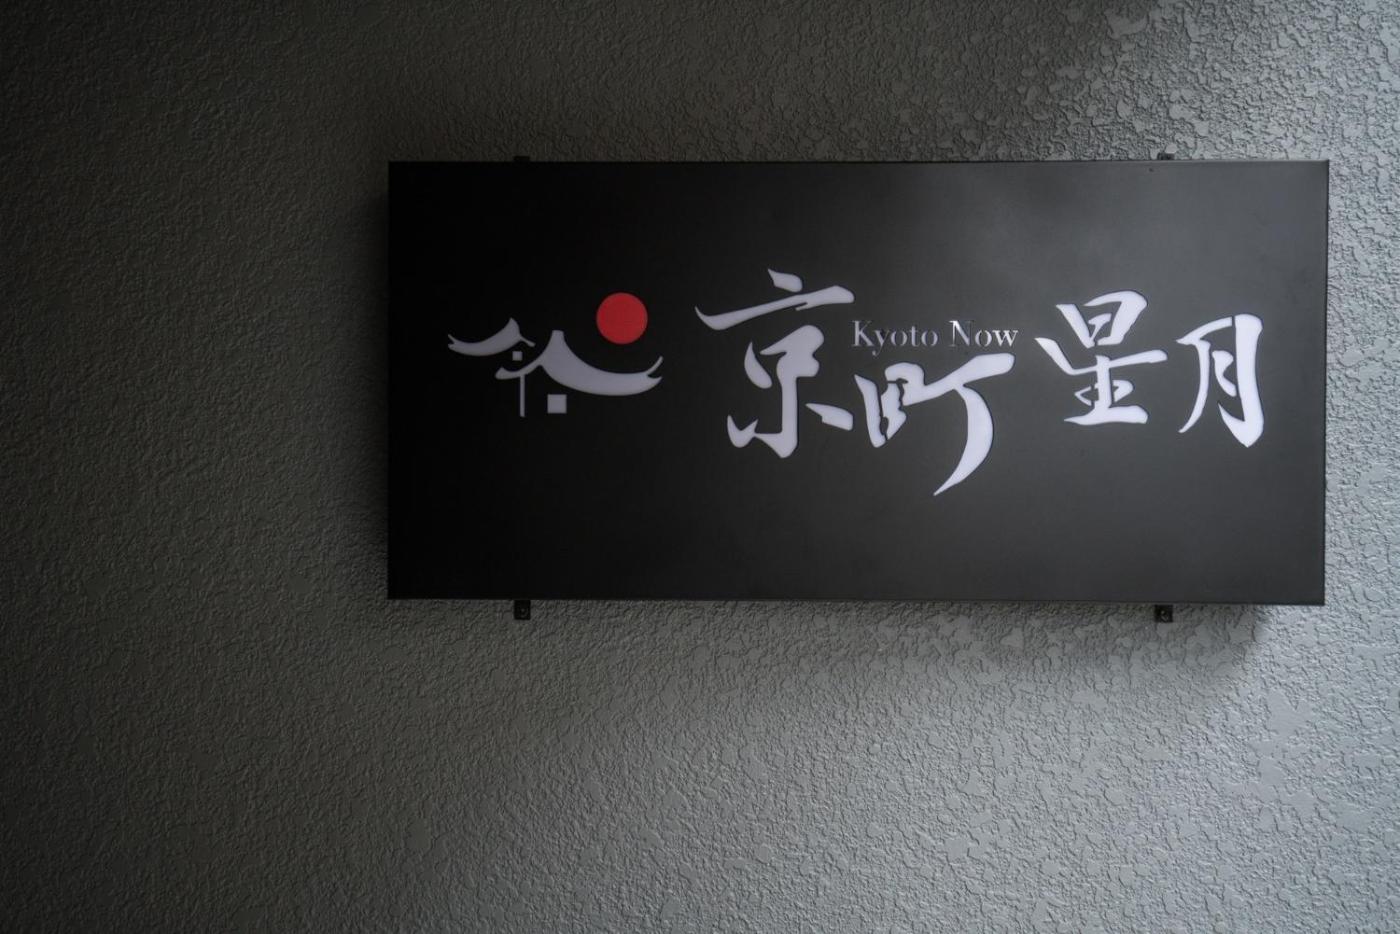 京町星月
Kyoto Now